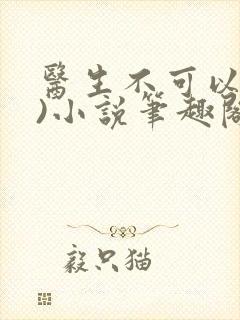 醫生不可以
)小說筆趣閣
毅只猫